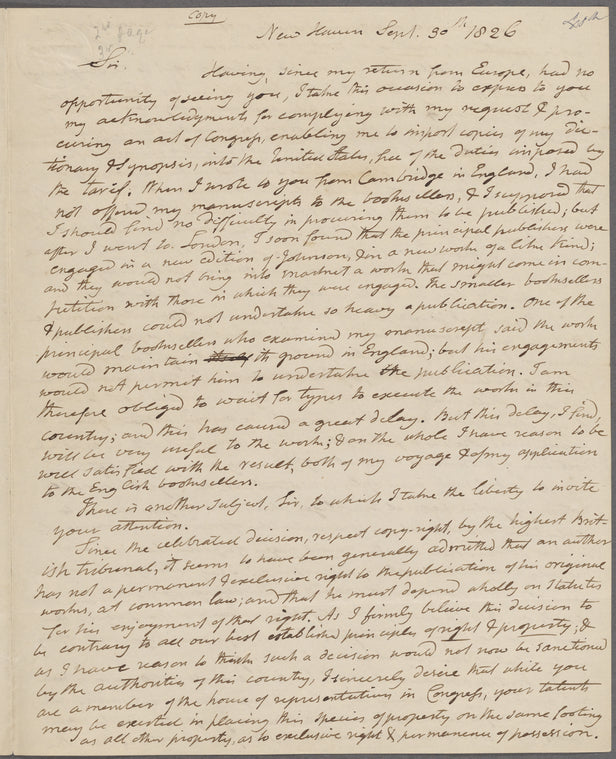 Copy
New Haven Sept. 30th 1826
Sir.
Having, since my return from Europe, had no
opportunity of seeing you, I take this occasion to express to you
my acknowledgments for complying with my request & pro-
curing an act of Congress, enabling me to import copies of my dic-
tionary & Synopsis, into the United States, free of the duties imposed by
the tarif. When I wrote to you from Cambridge in England, I had
not offered my manuscripts to the booksellers, & I supposed that
I should find no difficulty in procuring them to be published; but
after I went to London, I soon found that the principal publishers were
engaged in a new edition of Johnson, & in a new work of a like kind;
and they would not bring into market a work that might come in com-
petition with those in which they were engaged. The smaller booksellers
& publishers could not undertake so heavy a publication. One of the
principal booksellers who examined my manuscript, said the work
would maintain its ground in England; but his engagements
would not permit him to undertake the publication. I am
therefore obliged to wait for types to execute the work in this
country; and this has caused a great delay. But this delay, I find,
will be very useful to the work; & on the whole I have reason to be
well satisfied with the result, both of my voyage & of my application
to the English booksellers.
There is another subject, Sir, to which I take the liberty to invite
your attention.
Since the celebrated decision, respect copy-right, by the highest Brit-
ish tribunal, it seems to have been generally admitted that an author
has not a permanent & exclusive right to the publication of his original
works, at common law; and that he must depend wholly on Statutes
for his enjoyment of that right. As I firmly believe this decision to
be contrary to all our best established principles of right & property, &
as I have reason to think such a decision would not now be sanctioned
by the authorities of this country, I sincerely desire that while you
are a member of the house of representatives in Congress, your talents
may be exerted in placing this species of property on the same footing
as all other property, as to exclusive right & permanence of possession.